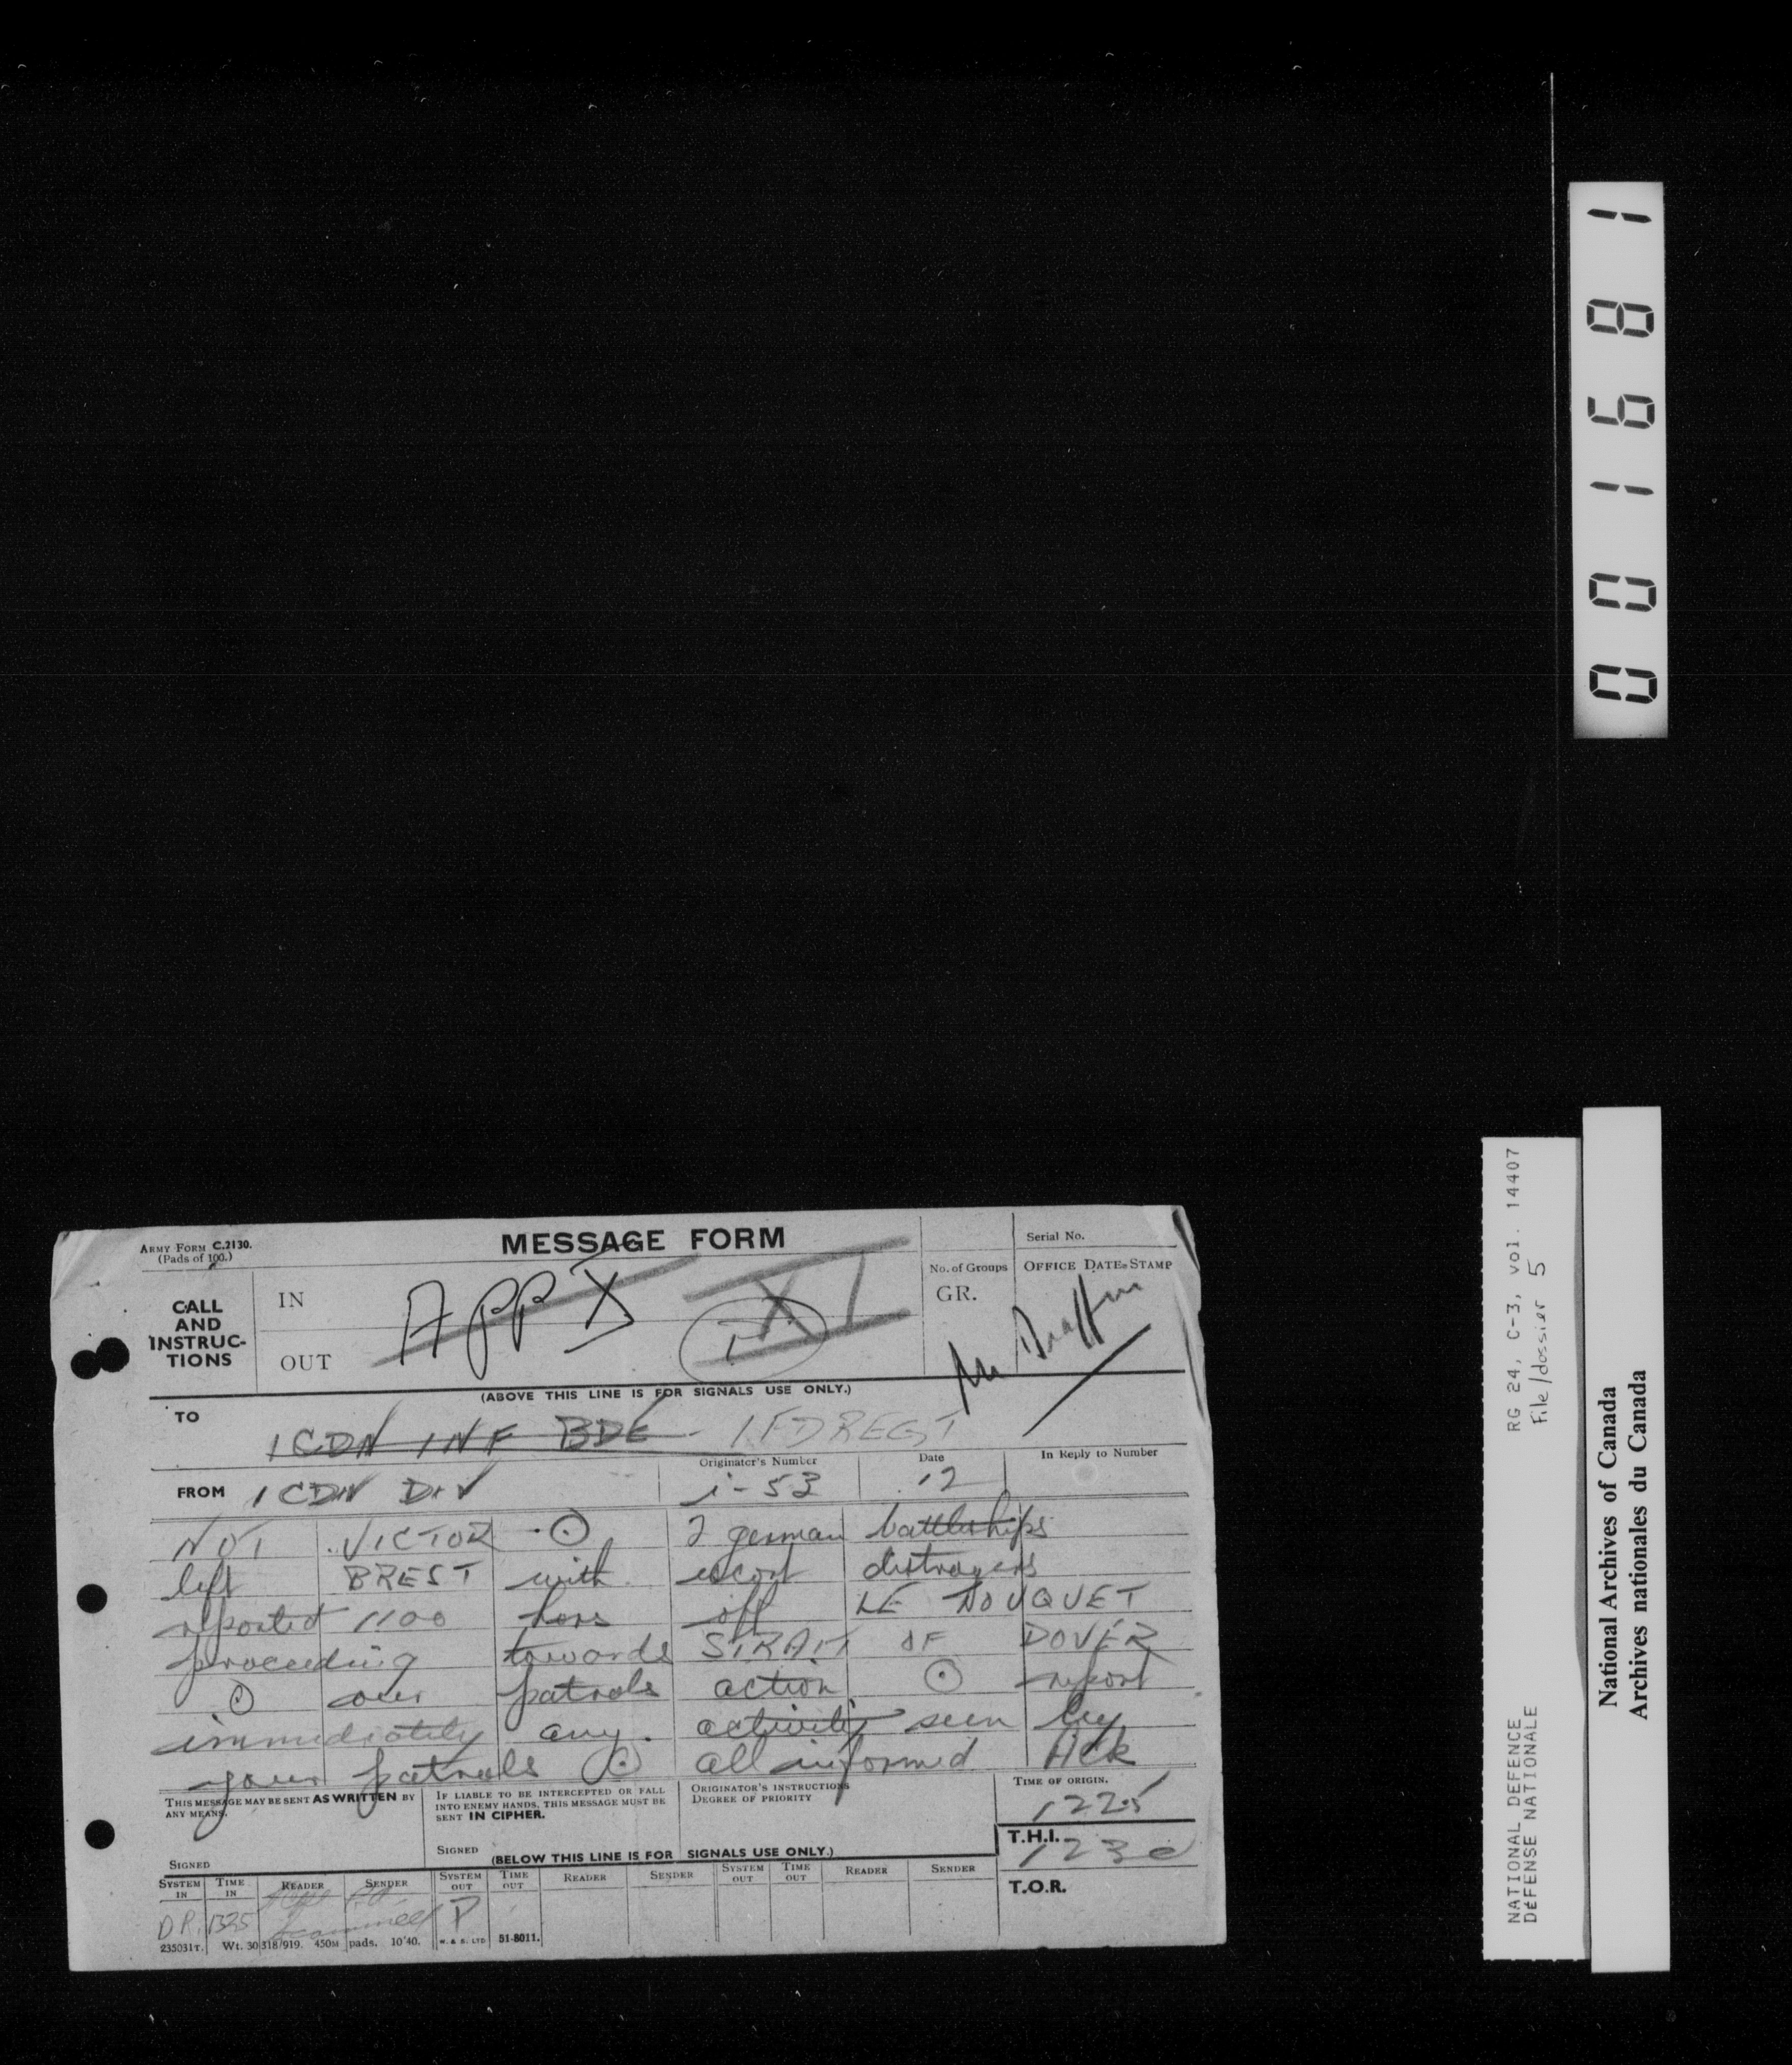 ARMY FORM C.2130.
(Pads of 100.)
MESSAGE FORM
Serial No.
CALL AND INSTRUC-TIONS
IN
OUT
No. of Groups
GR.
OFFICE DATE-STAMP
APP X
XI
(ABOVE THIS LINE IS FOR SIGNALS USE ONLY.)
TO
1 CDN INF BDE 1 FD REGT
FROM 1 CDN DIV
Originator's Number
i-53
Date
12
In Reply to Number
NOT VICTOR ⊙ 2 german battleships
left BREST with escort distroyers
reported 1100 hors off LE TOUQUET
proceeding towards STRAIT OF DOVER
⊙ our patrols action ⊙ report
immediately any activity seen by
your patrols ⊙ all informed Ack
THIS MESSAGE MAY BE SENT AS WRITTEN BY ANY MEANS.
SIGNED
IF LIABLE TO BE INTERCEPTED OR FALL INTO ENEMY HANDS, THIS MESSAGE MUST BE SENT IN CIPHER.
SIGNED
ORIGINATOR'S INSTRUCTIONS
DEGREE OF PRIORITY
TIME OF ORIGIN.
1225
T.H.I.
1230
T.O.R.
(BELOW THIS LINE IS FOR SIGNALS USE ONLY.)
SYSTEM IN TIME IN READER SENDER SYSTEM OUT TIME OUT READER SENDER SYSTEM OUT TIME OUT READER SENDER
D.R. 1325 P
235031T. Wt. 30318/919. 450M pads. 10'40. W. & S. LTD 51-8011.
001681
NATIONAL DEFENCE RG 24, C-3, vol. 14407
DÉFENSE NATIONALE File/dossier 5
National Archives of Canada
Archives nationales du Canada